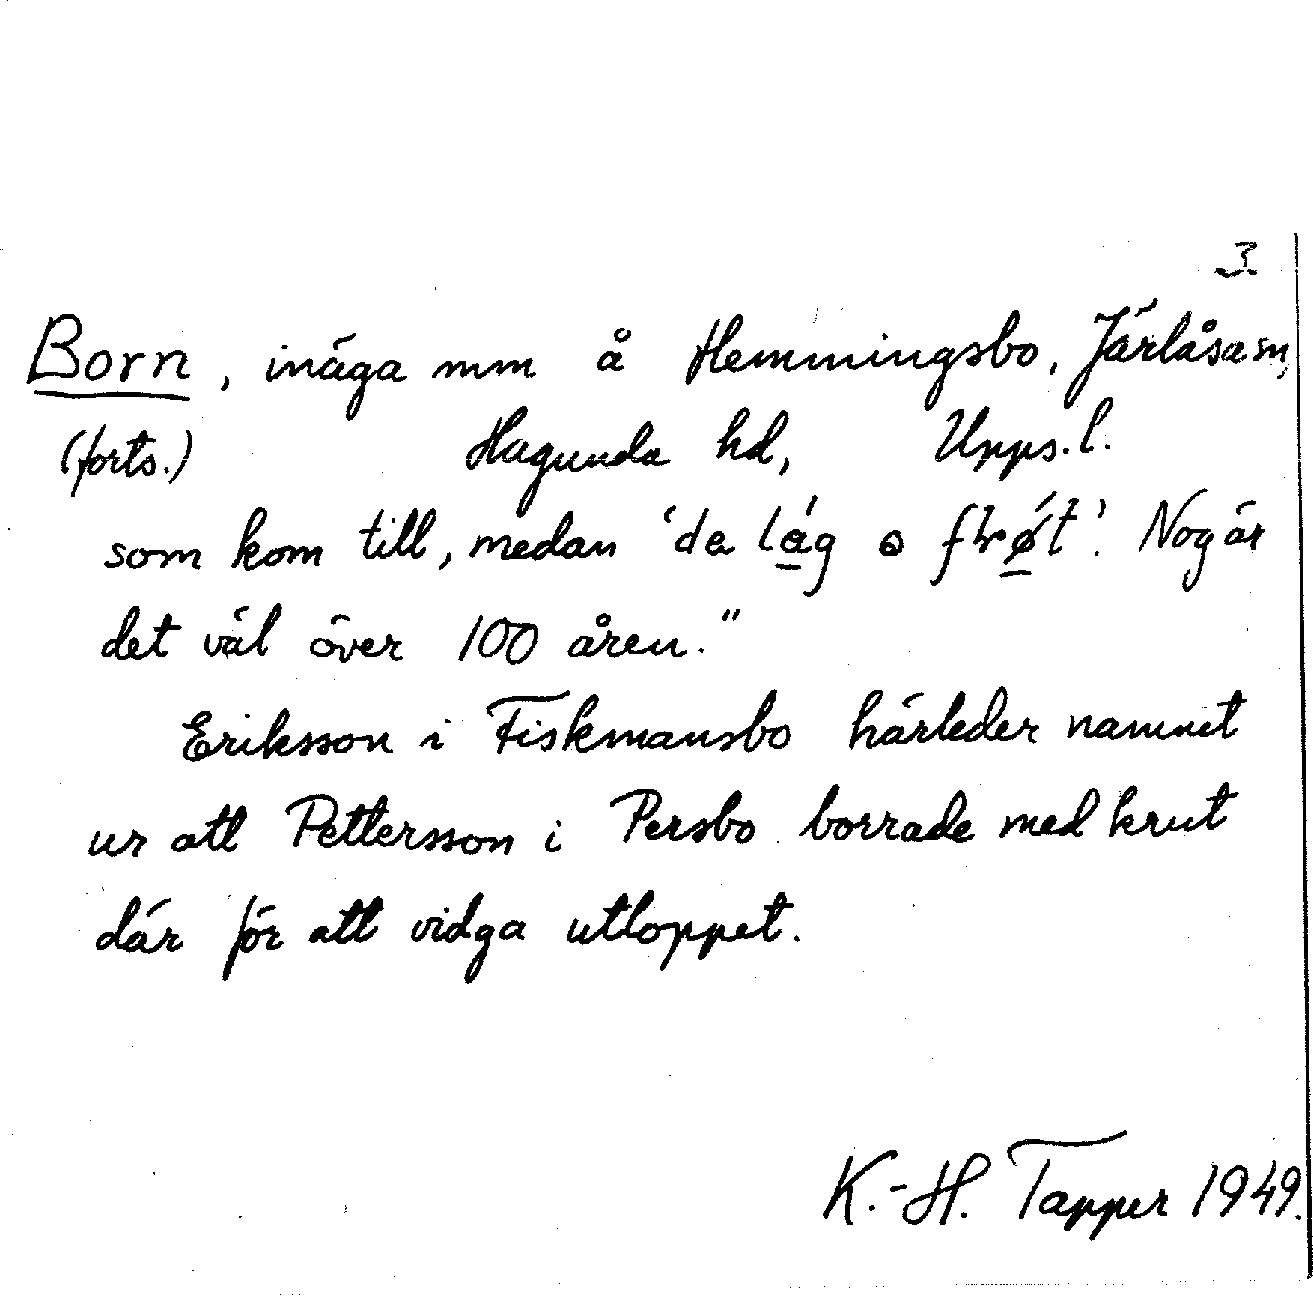 3.
Born, inäga mm å Hemmingsbo, Järlåsa sn,
(forts.) Hagunda hd, Upps. l.
som kom till, medan 'de lág o
Nog är
det väl över 100 åren."
Eriksson i Fiskmansbo härleder namnet
ur att Pettersson i Persbo borrade med krut
där för att vidga utloppet.
K.-H. Tapper 1949.